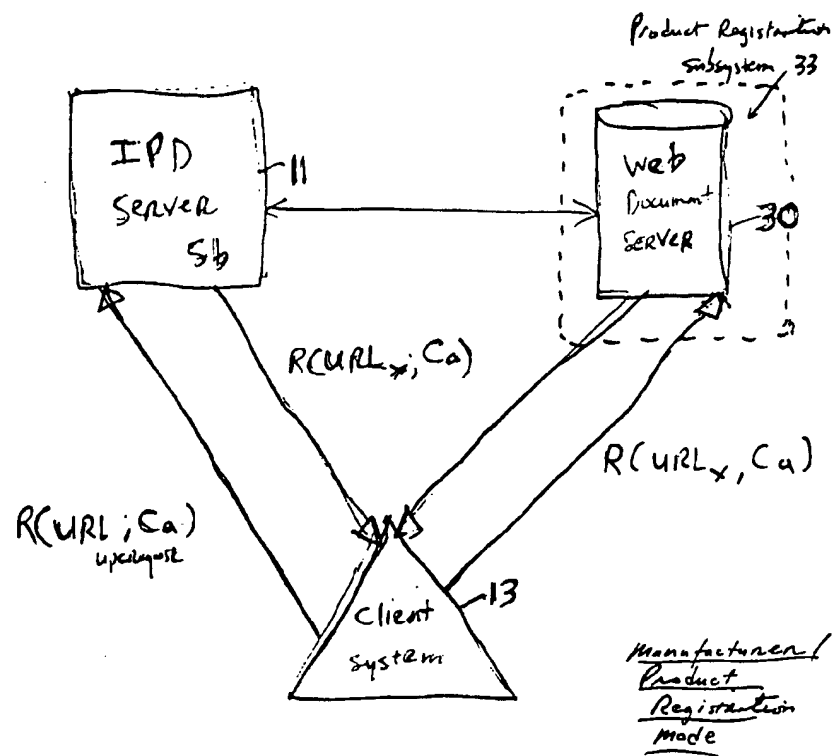 Product Registration
Subsystem 33
IPD
SERVER
5b
11
Web
Document
SERVER
30
R(URLx; Ca)
R(URLx, Ca)
R(URL; Ca)
Client
System
13
Manufacturer/
Product
Registration
Mode